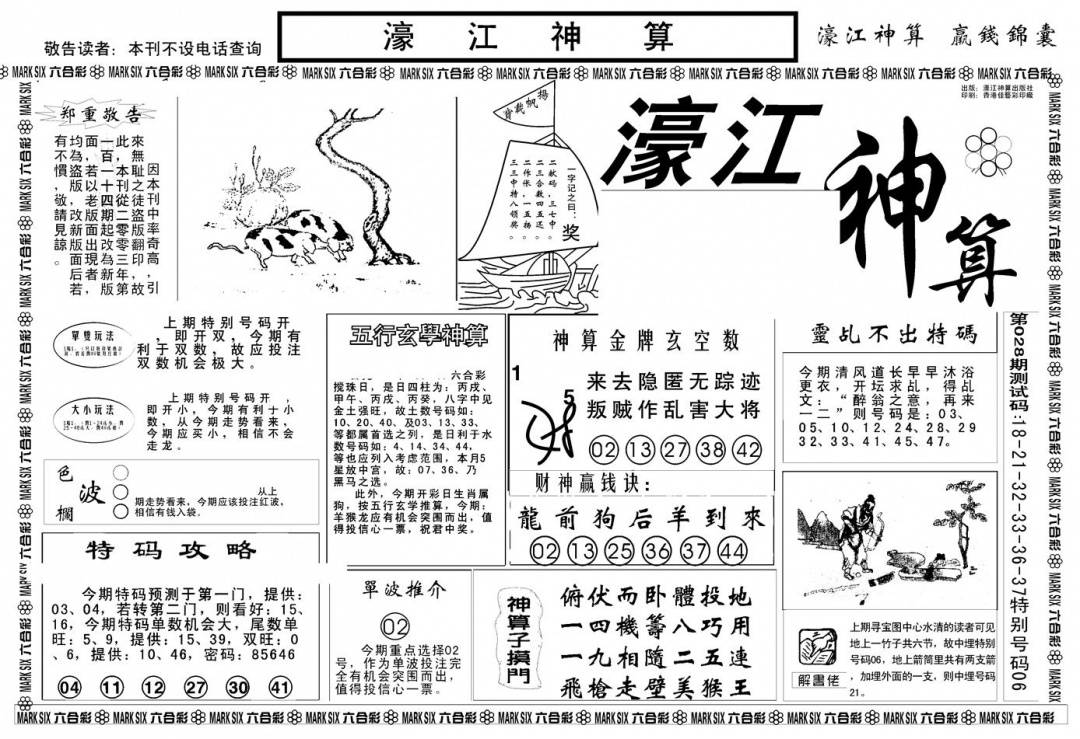 敬告读者：本刊不设电话查询
濠江神算
濠江神算 贏錢錦囊
MARK SIX 六合彩
出版：濠江神算出版社
印刷：香港佳藝彩印廠
郑重敬告
因本刊中率奇高，引
來無耻之徒盗版翻印，故
此一本刊從二零零三年第
一百一十四期起改為新版
面，若以老版面出現者，若
均為盗版，改新版面后
有不慣，敬請見諒。
揚帆載譽
一字记之曰：奖
二献码，三七中
二三合数四五还
二作张，一五扬
三三中特八领奖。
濠江神算
單雙玩法
上期特别号码开
，即开双，今期有
利于双数，故应投注
双数机会极大。
大小玩法
上期特别号码开，
即开小，今期有利于小
数，从今期走势看来，
今期应买小，相信不会
走龙。
色波欄
从上
期走势看来，今期应该投注红波，
相信有钱入袋。
特码攻略
今期特码预测于第一门，提供：
03、04，若转第二门，则看好：15、
16，今期特码单数机会大，尾数单
旺：5、9，提供：15、39，双旺：0
、6，提供：10、46，密码：85646
04 11 12 27 30 41
五行玄學神算
六合彩
搅珠日，是日四柱为：丙戌、
甲午、丙戌、丙癸，八字中见
金土强旺，故土数号码如：
10、20、40、及03、13、33、
等都属首选之列，是日利于水
数号码如：4、14、34、44，
等也应列入考虑范围，本月5
星放中宫，故：07、36、乃
黑马之选。
此外，今期开彩日生肖属
狗，按五行玄学推算，今期：
羊猴龙应有机会突围而出，值
得投信心一票，祝君中奖。
單波推介
02
今期重点选择02
号，作为单波投注完
全有机会突围而出，
值得投信心一票。
神算金牌玄空数
1
5
来去隐匿无踪迹
叛贼作乱害大将
02 13 27 38 42
财神赢钱诀：
龍前狗后羊到來
02 13 25 36 37 44
神算子摸門
俯伏而卧體投地
一四機籌八巧用
一九相隨二五連
飛槍走壁美猴王
靈乩不出特碼
今期清风道长早早沐浴
更衣，开坛求乩，得乩
文：“醉翁之意，再来
一二”则号码是：03、
05、10、12、24、28、29
32、33、41、45、47。
解畫佬
上期寻宝图中心水清的读者可见
地上一竹子共六节，故中埋特别
号码06，地上箭筒里共有两支箭
，加埋外面的一支，则中埋号码
21。
第028期测试码：18-21-32-33-36-37特别号码06